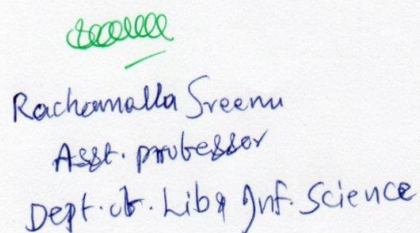 Rachamalla Sreenu
Asst. professor
Dept. of. Lib & Inf. Science